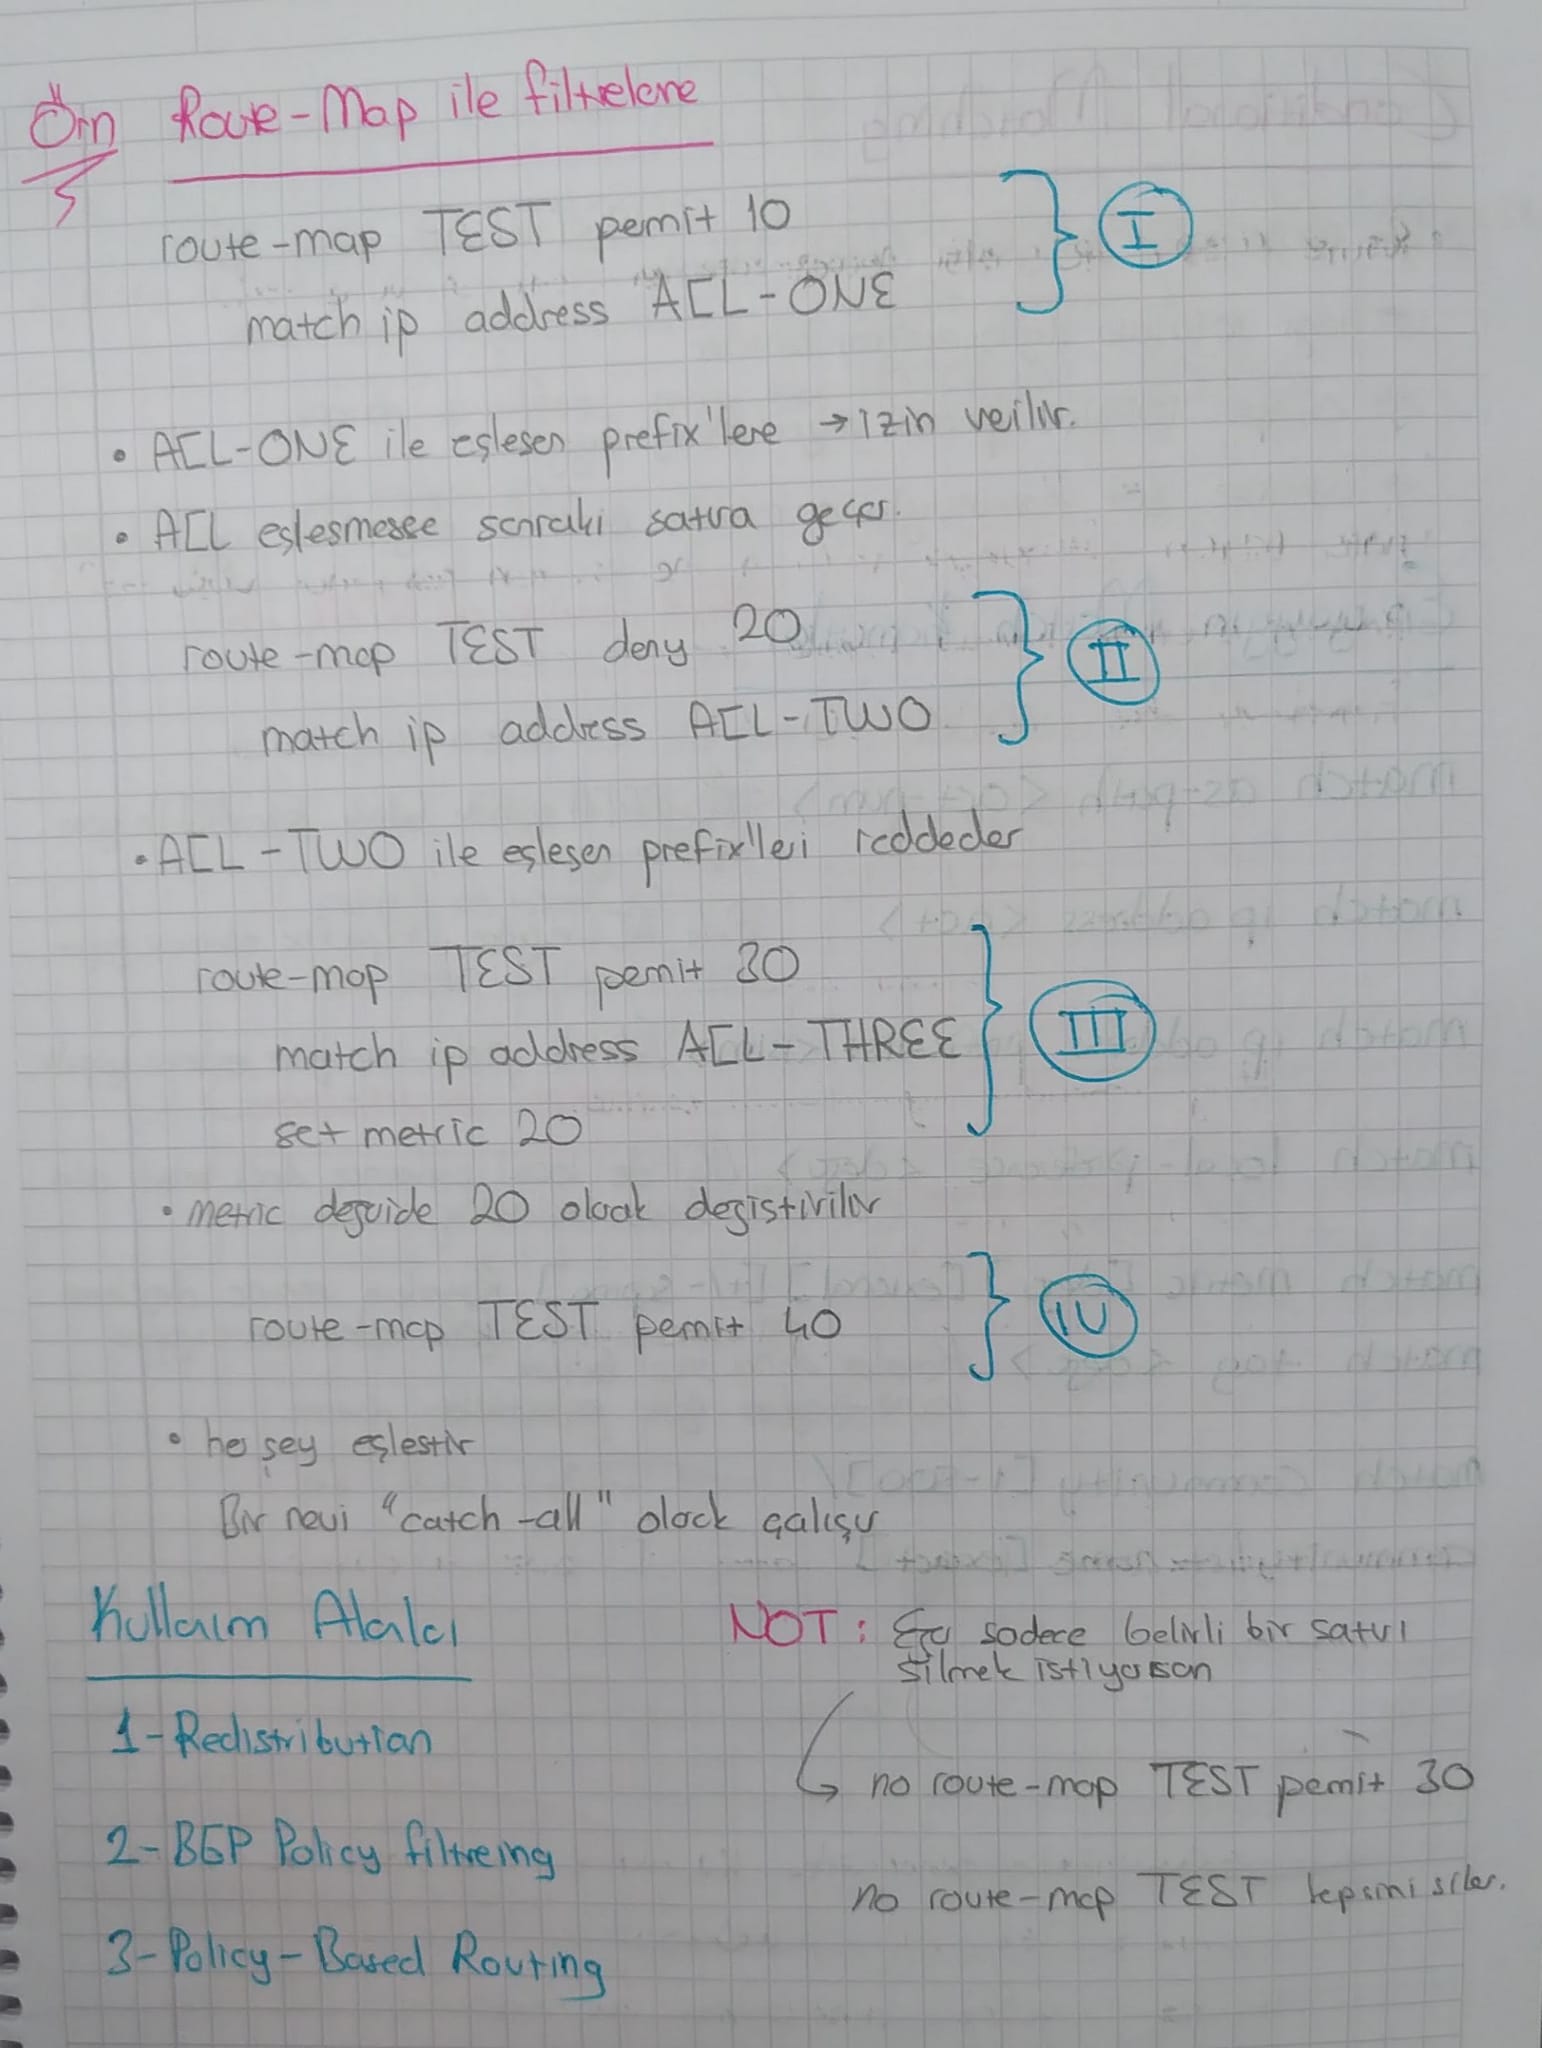 Örn Route-Map ile filtreleme
route-map TEST permit 10
match ip address ACL-ONE
I
• ACL-ONE ile eşleşen prefix'lere → izin verilir.
• ACL eşleşmesse sonraki satıra geçer.
route-map TEST deny 20
match ip address ACL-TWO
II
• ACL-TWO ile eşleşen prefix'leri reddeder
route-map TEST permit 30
match ip address ACL-THREE
set metric 20
III
• metric değeride 20 olarak değiştirilir
route-map TEST permit 40
IV
• her şey eşleştir
Bir nevi "catch-all" olarak çalışır
Kullanım Alanları
1-Redistribution
2-BGP Policy filtreing
3-Policy-Based Routing
NOT: Eğer sadece belirli bir satırı
silmek istiyorsan
no route-map TEST permit 30
no route-map TEST hepsini siler.